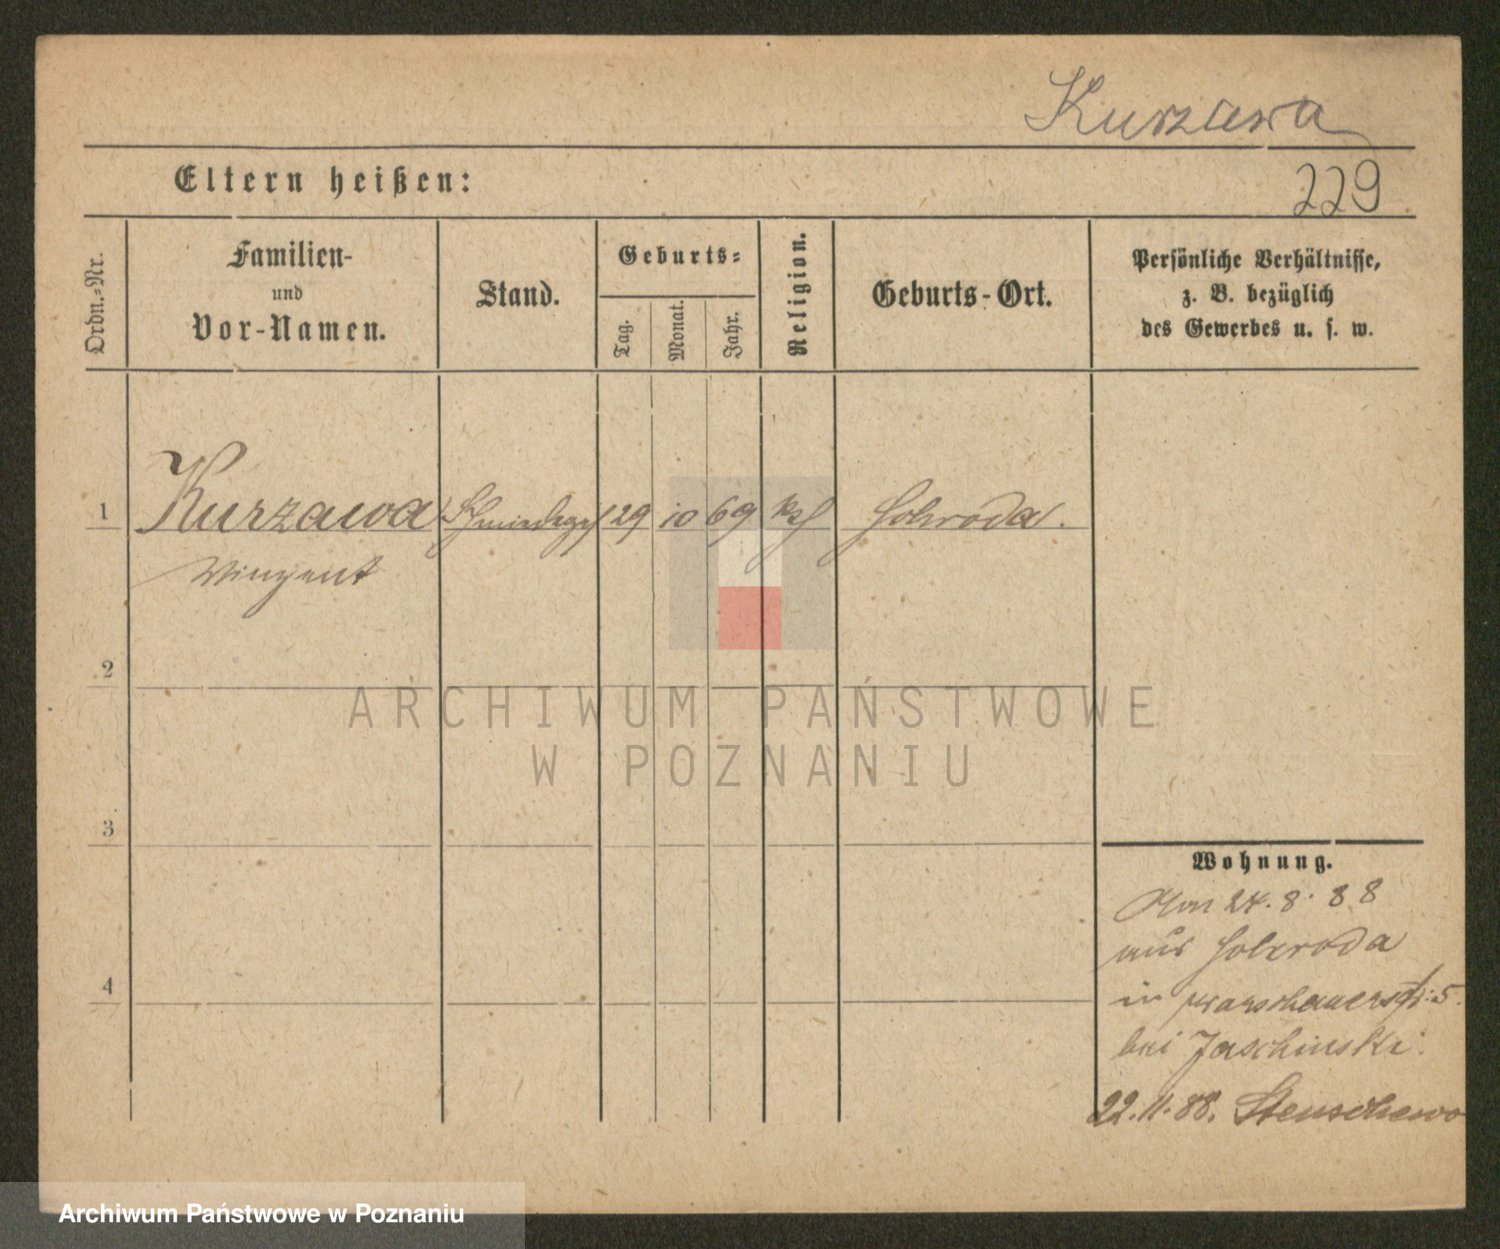 Kurzawa
Eltern heißen:
229
Ordn.-Nr.
Familien-
und
Vor-Namen.
Stand.
Geburts-
Tag.
Monat.
Jahr.
Religion.
Geburts-Ort.
Persönliche Verhältnisse,
z. B. bezüglich
des Gewerbes u. s. w.
1 Kurzawa Schmiedeges 29 10 69 kath
Winzent
2
ARCHIWUM PAŃSTWOWE
W POZNANIU
3
Wohnung.
24. 8. 88
aus
4
in 5.
bei Jaschinski.
22. 11. 88. Stenschewo
Archiwum Państwowe w Poznaniu